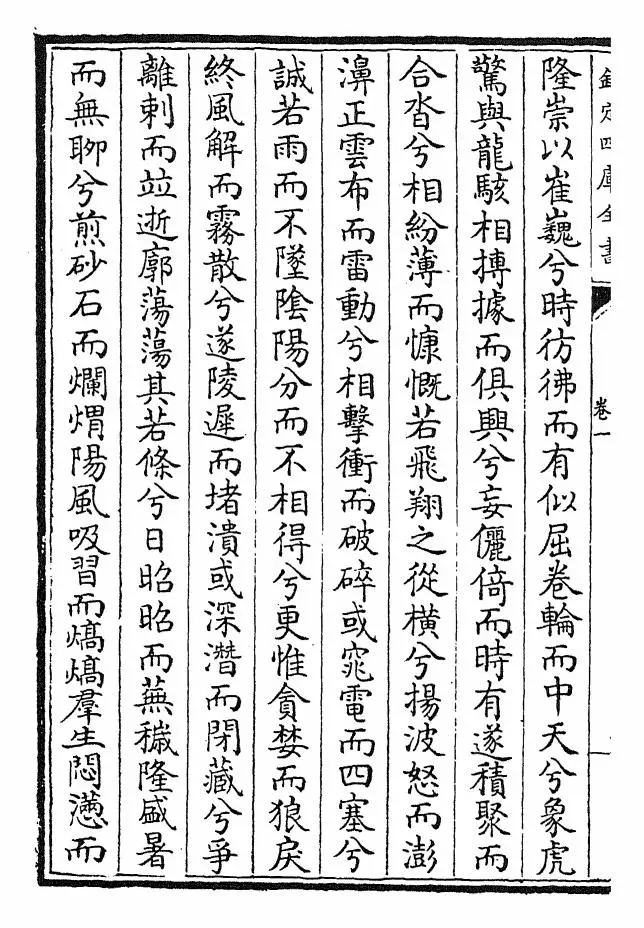 欽定四庫全書
卷一
隆崇以崔巍兮時彷彿而有似屈卷輪而中天兮象虎
驚與龍駭相搏據而俱興兮妄儷倚而時有遂積聚而
合沓兮相紛薄而慷慨若飛翔之從橫兮揚波怒而澎
濞正雲布而雷動兮相擊衝而破碎或窕電而四塞兮
誠若雨而不墜陰陽分而不相得兮更惟貪婪而狼戾
終風解而霧散兮遂陵遲而堵潰或深潛而閉藏兮爭
離刺而竝逝廓蕩蕩其若滌兮日昭昭而蕪穢隆盛暑
而無聊兮煎砂石而爛煟陽風吸習而熇熇羣生悶懣而